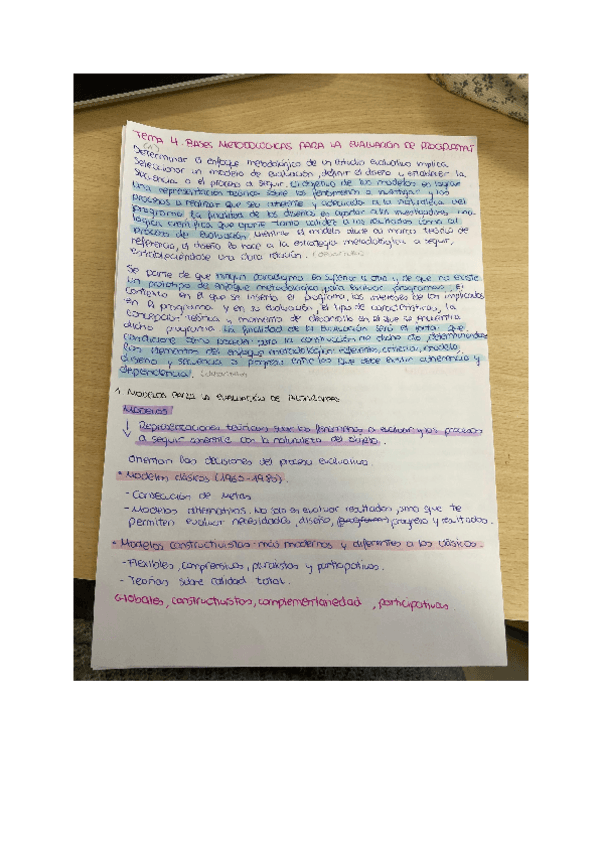 TEMA 4. BASES METODOLÓGICAS PARA LA EVALUACIÓN DE PROGRAMAS
Determinar el enfoque metodológico de un estudio evaluativo implica
seleccionar un modelo de evaluación, definir el diseño y establecer la
secuencia o el proceso a seguir. El objetivo de los modelos es lograr
una representación teórica sobre los fenómenos a investigar y los
procesos a realizar que sea coherente y adecuado a la naturaleza del
programa. La finalidad de los diseños es aportar a los investigadores una
lógica científica que aporte tanto validez a los resultados como al
proceso de evaluación. Mientras el modelo alude al marco teórico de
referencia, el diseño lo hace a la estrategia metodológica a seguir,
estableciéndose una clara relación.
Se parte de que ningún paradigma es superior a otro y de que no existe
un prototipo de enfoque metodológico para evaluar programas. El
contexto en el que se inserta el programa, los intereses de los implicados
en el programa y en su evaluación, el tipo de características, la
concepción teórica y momento de desarrollo en el que se encuentra
dicho programa y la finalidad de la evaluación será el factor que
condicione cómo proceder para la construcción de dicho
los elementos del enfoque metodológico: referentes, criterios, modelo,
diseño y secuencia o proceso, entre los que debe existir coherencia y
dependencia.
1. MODELOS PARA LA EVALUACIÓN DE PROGRAMAS
MODELOS
↓ Representaciones teóricas sobre los fenómenos a evaluar y los procesos
a seguir coherente con la naturaleza del objeto.
Orientan las decisiones del proceso evaluativo.
* Modelos clásicos (1965-1985).
- Consecución de metas
- Modelos alternativos. No solo en evaluar resultados, sino que te
permiten evaluar necesidades, diseño, progreso y resultados.
* Modelos constructivistas: más modernos y diferentes a los clásicos.
- Flexibles, comprensivos, pluralistas y participativos.
- Teorías sobre calidad total.
Globales, constructivistas, complementariedad, participativas